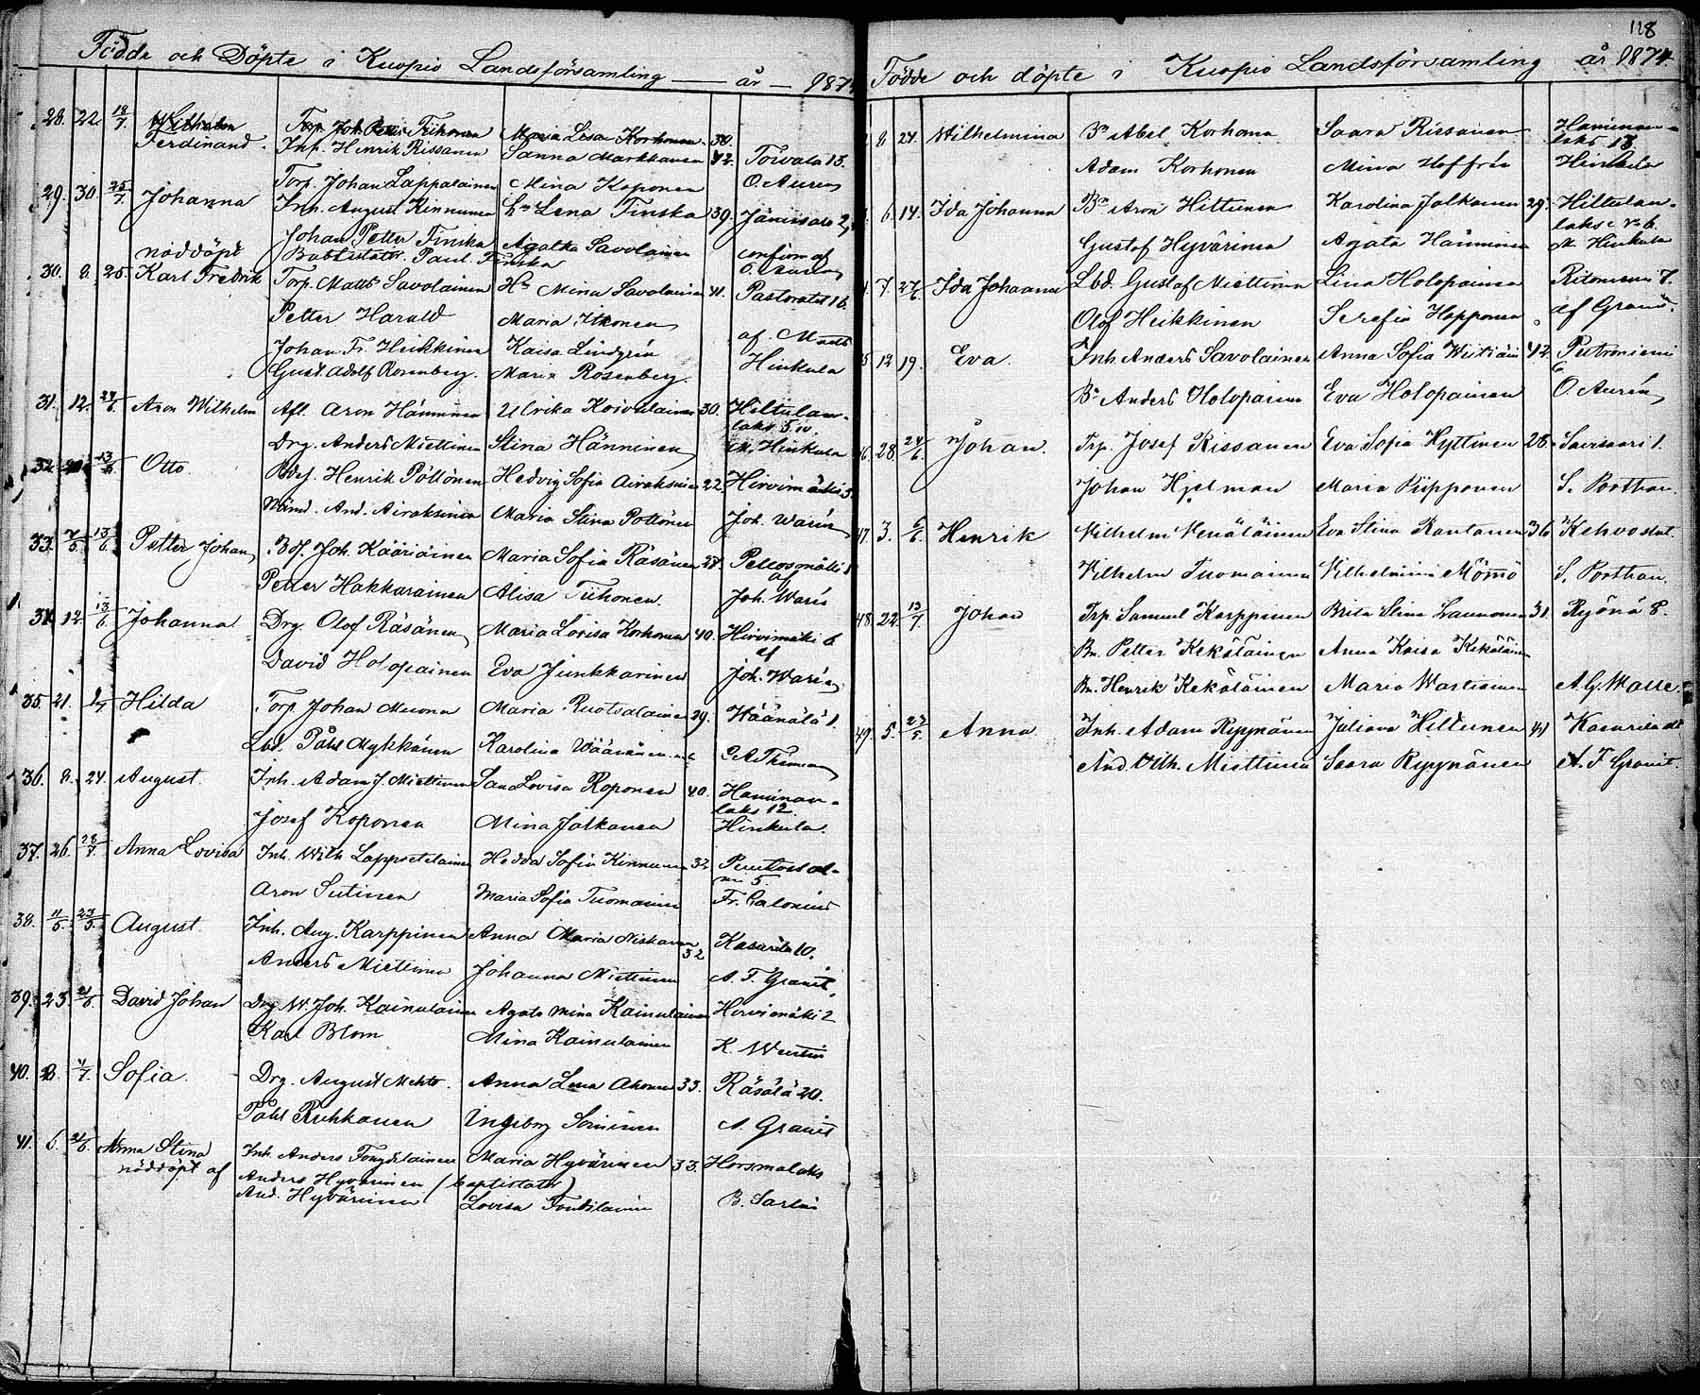 Födde och Döpte i Kuopio Landsförsamling — år — 187
28. 22 18/7. Wilhelm Torp. Joh. Petter Tiihonen Maria Lisa Korhonen 38.
Ferdinand. Inh. Henrik Rissanen Sanna Markkanen 42. Toivala 18.
Torp. Johan Lappalainen Mina Koponen O. Auren
29. 30. 25/7. Johanna Inh. August Kinnunen Lena Finska 39. Jänissalo 2,
Johan Petter Finska Agatha Savolainen
nöddöpt Babtistator. Paul. Finska confirm af
O. Auren
30. 8. 25 Karl Fredrik Torp. Matts Savolainen Hu Mina Savolainen 41. Pastoratet 16.
Petter Harald Maria Itkonen
af M
Johan Fr. Heikkinen Kaisa Lindgrén Hinkula
Gust. Adolf Rosenberg. Maria Rosenberg.
31. 12. 27/6. Aron Wilhelm Afl. Aron Hänninen Ulrika Koivulainen 30. Hiltulan-
laks 5
Drg. Anders Miettinen Stina Hänninen M. Hinkula
32. 13/6 Otto Henrik Pöllönen Hedvig Sofia Airaksinen 22. Hirvimäki 3
And. Airaksinen Maria Stina Pöllönen
Joh. Warén
33. 7/5. 13/6. Petter Johan Bdf. Joh. Kääriäinen Maria Sofia Räsänen 27. Pellosmäki 1
Petter Hakkarainen Alisa Tiihonen. af
Joh. Warén
34. 12. 13/6. Johanna Drg. Olof Räsänen Maria Lovisa Korhonen 40. Hirvimäki 6
David Holopainen Eva Junkkarinen af
Joh. Warén
35. 21. Hilda Torp. Johan Maria Ruotsalainen 29. Väänälä 1.
Lbd. Påhl Mykkänen Karolina Wäänänen
36. 8. 24. August Inh. Adam J. Miettinen Sana Lovisa Koponen 40. Haminan-
laks 12
Josef Koponen Mina Jalkanen Hinkula.
37. 26. 28/7. Anna Lovisa Inh. Wilh. Lappeteläinen Hedda Sofia Kinnunen 32
Aron Sutinen Maria Sofia Tuomainen Fr. Calonius
38. 11/5. 23/5. August. Inh. Aug. Karppinen Anna Maria Niskanen 32 Kasurila 10.
Anders Miettinen Johanna Miettinen A. F. Granit.
39. 23. 21/6. David Johan Drg. W. Joh. Kainulainen Agata Mina Kainulainen Hirvimäki 2
Karl Blom Mina Kainulainen K.
40. 4/7. Sofia. Drg. August Mehto. Anna Lena Ahonen 33. Räsälä 20.
Påhl Ruhkanen Ingeborg Soininen A. Granit
41. 6. 21/6. Anna Stina Inh. Anders Maria Hyvärinen 33. Horsmalaks
nöddöpt af Anders Hyvärinen (baptistator)
And. Hyvärinen Lovisa B. Sarlin
118
Födde och döpte i Kuopio Landsförsamling år 1874.
8 24 Wilhelmina Bn Abel Korhonen Saara Rissanen Haminan-
laks 18.
Adam Korhonen Mina Hoffrén Hinkula
6. 14. Ida Johanna Bn Aron Hiltunen Karolina Jalkanen 29. Hiltulan-
laks No 6.
Gustaf Hyvärinen Agata Hänninen M. Hinkula
7. 27/6. Ida Johanna Lbd. Gustaf Miettinen Lina Holopainen Ritoniemi 7.
Olof Heikkinen Serafia Happonen af Granit.
12 19. Eva. Inh. Anders Savolainen Anna Sofia 42. Putroniemi
6
Bn Anders Holopainen Eva Holopainen O. Aurén
28. 24/6. Johan. Trp. Josef Rissanen Eva Sofia Hyttinen 28. Savisaari 1.
Johan Hjelman Maria Piipponen S. Porthan.
47. 3. 6/6. Henrik Wilhelm Venäläinen Eva Stina Rautanen 36 Kehvo
Vilhelm Tuomainen Vilhelmina Mömmö S. Porthan.
48. 22. 13/7. Johan Trp. Samuel Karppinen Brita Stina Launonen 31. Ryönä 8.
Bn. Petter Kekäläinen Anna Kaisa Kekäläinen
Bn. Henrik Kekäläinen Maria Wartiainen A. G. Walle.
49. 5. 23/5. Anna Inh. Adam Ryynänen Juliana Hiltunen 41 Kasurila
And. Vilh. Miettinen Saara Ryynänen A. F. Granit.